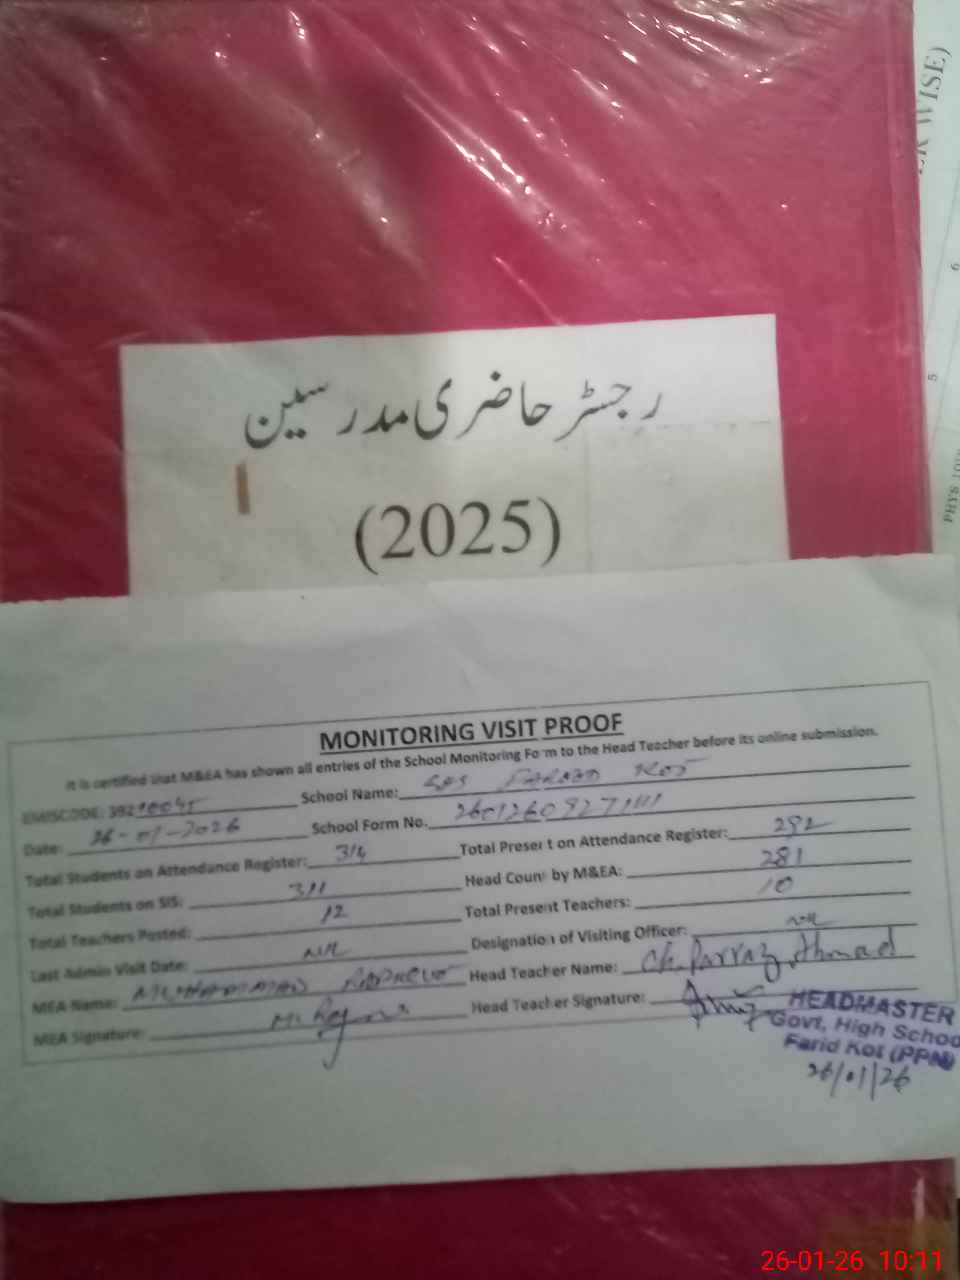 رجسٹر حاضری مدرسین
(2025)
ER WISE)
6
5
PHYS
MONITORING VISIT PROOF
It is certified that M&EA has shown all entries of the School Monitoring Form to the Head Teacher before its online submission.
EMISCODE: 392 School Name: KOT
Date: 26-01-2026 School Form No.
Total Students on Attendance Register: 314 Total Present on Attendance Register: 292
Total Students on SIS: 311 Head Count by M&EA: 281
Total Teachers Posted: 12 Total Present Teachers: 10
Last Admin Visit Date: Nil Designation of Visiting Officer: Nil
MEA Name: MUHAMMAD Head Teacher Name: Ch. Parvaz Ahmad
MEA Signature: Head Teacher Signature:
HEADMASTER
Govt, High School
Farid Kot (PPN)
26/01/26
26-01-26 10:11